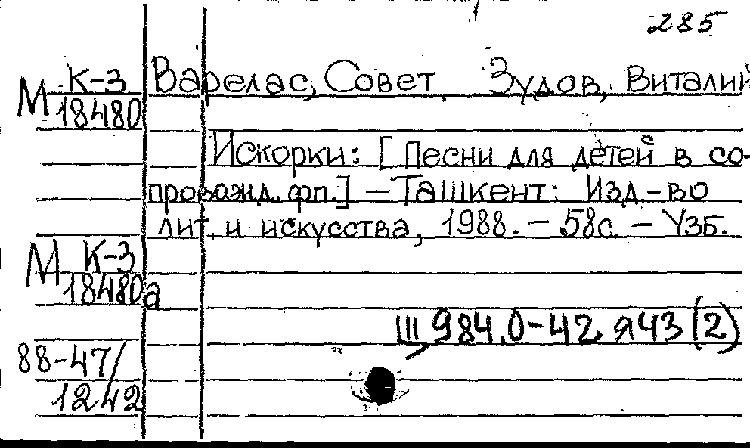 285
М К-3 Варелас, Совет. Зудов, Виталий
18480
Искорки: [Песни для детей в со-
провожд. фп.] – Ташкент: Изд-во
лит. и искусства, 1988. – 58с. – Узб.
М К-3
18480а
Щ984.0-42я43(2)
88-47/
1242